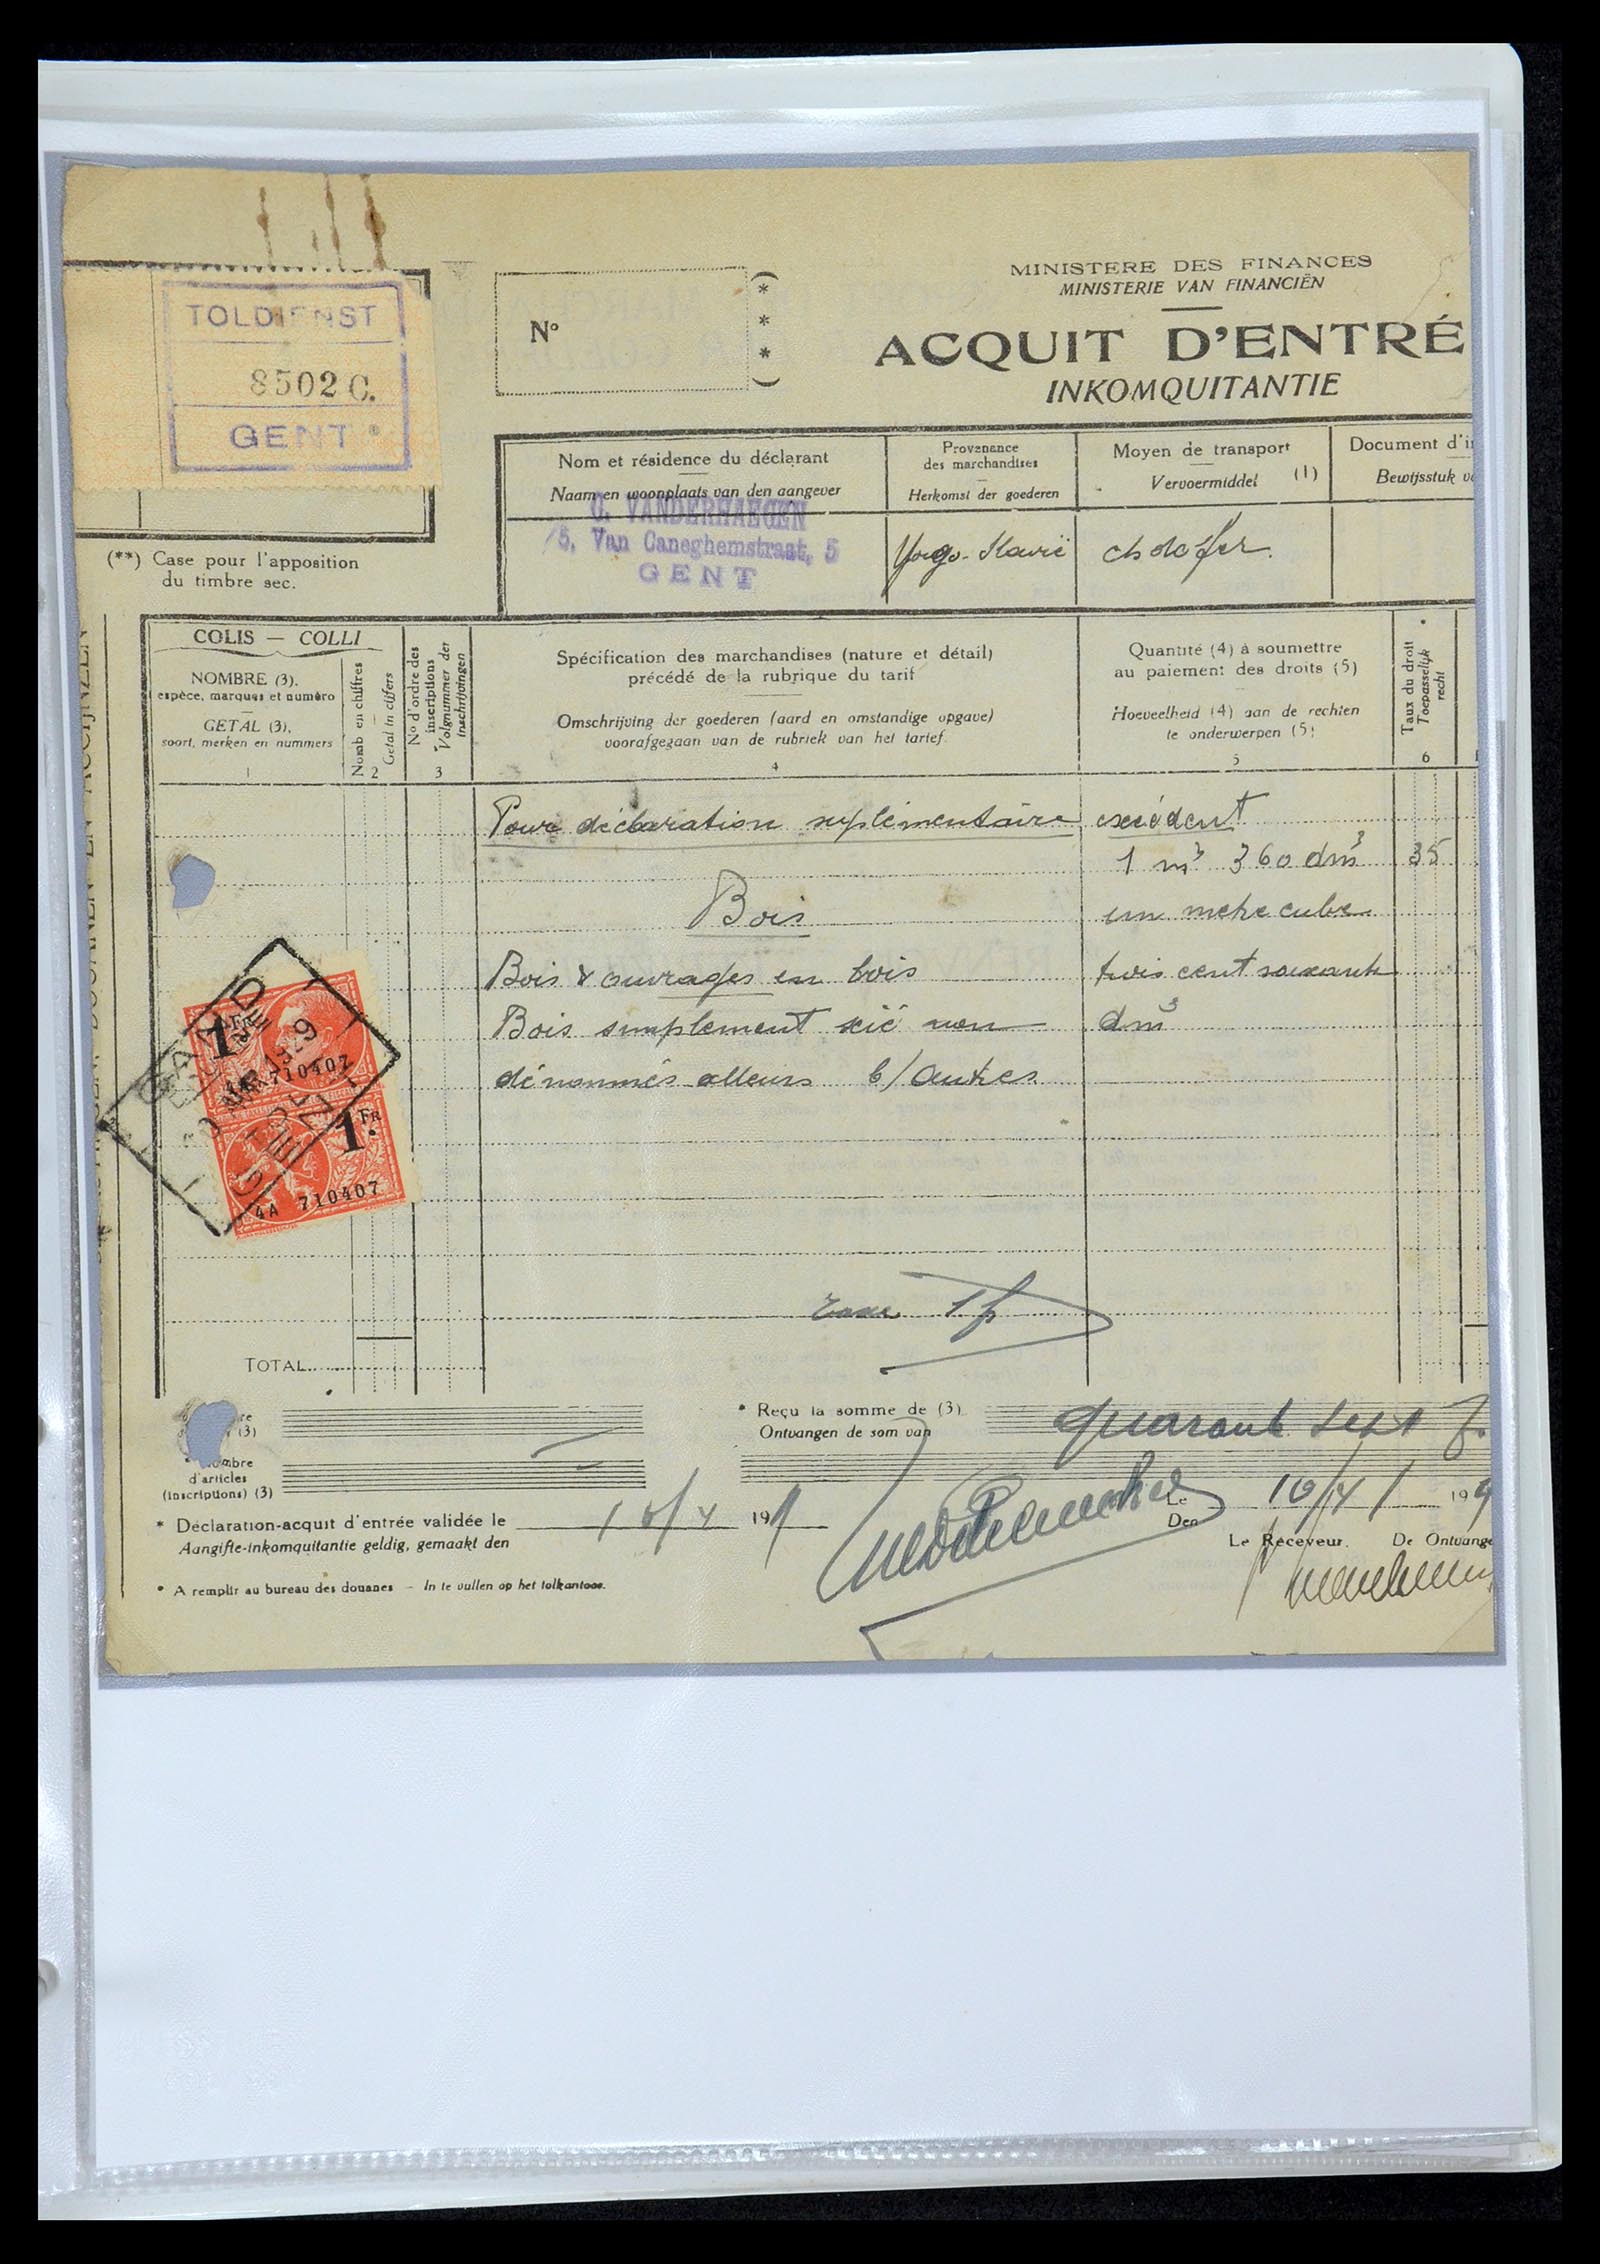 TOLDIENST
8502 C.
GENT
(**) Case pour l'apposition
du timbre sec.
No
(***)
MINISTERE DES FINANCES
MINISTERIE VAN FINANCIËN
ACQUIT D'ENTRÉ
INKOMQUITANTIE
Nom et résidence du déclarant
Naam en woonplaats van den aangever
C. VANDERHAEGEN
5, Van Caneghemstraat, 5
GENT
Provenance
des marchandises
Herkomst der goederen
Moyen de transport
Vervoermiddel (1)
Document d'i
Bewijsstuk v
COLIS — COLLI
NOMBRE (3).
espèce, marques et numéro
GETAL (3).
soort, merken en nummers
1
Nomb en chiffres
Getal in cijfers
2
No d'ordre des
inscriptions
Volgnummer der
inschrijvingen
3
Spécification des marchandises (nature et détail)
précédé de la rubrique du tarif
Omschrijving der goederen (aard en omstandige opgave)
voorafgegaan van de rubriek van het tarief.
4
Quantité (4) à soumettre
au paiement des droits (5)
Hoeveelheid (4) aan de rechten
te onderwerpen (5)
5
Taux du droit
Toepasselijk
recht
6
Pour déclaration suplémentaire excédent
1 m3 360 dm3 35
Bois un metre cube
Bois & ouvrages en bois trois cent soixante
Bois simplement scié non dm3
dénommés alleurs b/ Autres
1 FR
4A 710407
1 FR
4A 710407
GAND
GENT
taxe 1 f
TOTAL
(3)
* Nombre
d'articles
(inscriptions) (3)
* Reçu la somme de (3)
Ontvangen de som van
quarante sept f.
* Déclaration-acquit d'entrée validée le 10/4 19
Aangifte-inkomquitantie geldig, gemaakt den
Le
Den
10/4 19
Le Receveur. De Ontvange
* A remplir au bureau des douanes — In te vullen op het tolkantoor.